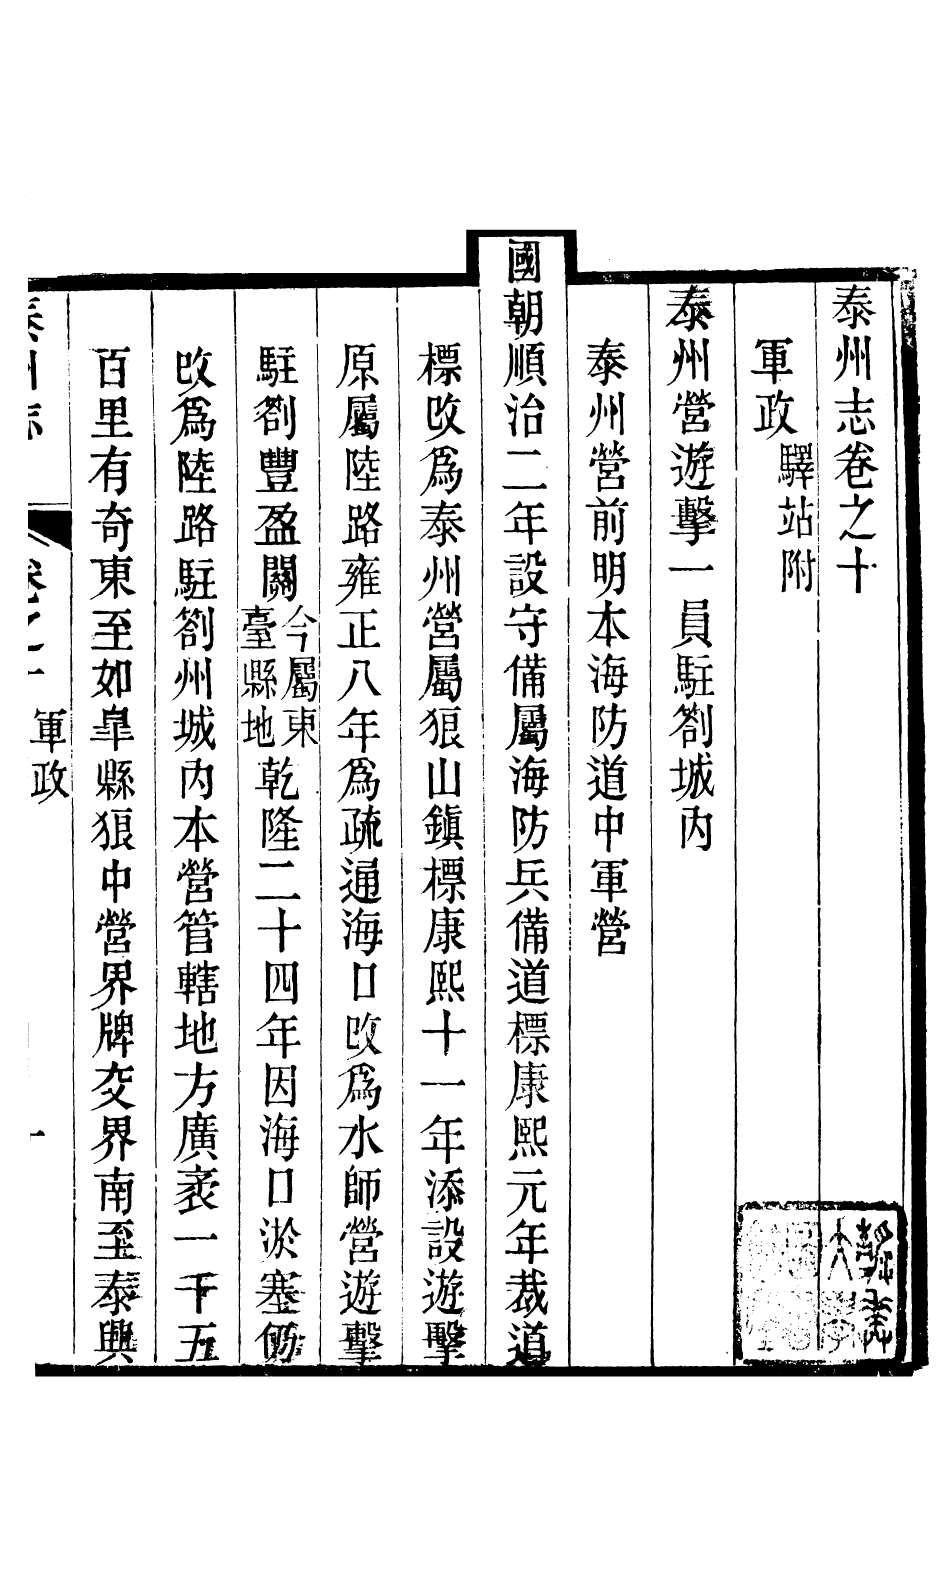 泰州志卷之十
軍政驛站附
泰州營遊擊一員駐劄城内
泰州營前明本海防道中軍營
國朝順治二年設守備屬海防兵備道標康熙元年裁道
標改爲泰州營屬狼山鎭標康熙十一年添設遊擊
原屬陸路雍正八年爲疏通海口改爲水師營遊擊
駐劄豐盈關今屬東臺縣地乾隆二十四年因海口淤塞仍
改爲陸路駐劄州城内本營管轄地方廣袤一千五
百里有奇東至如臯縣狼中營界牌交界南至泰興
泰州志 卷之十 軍政 一